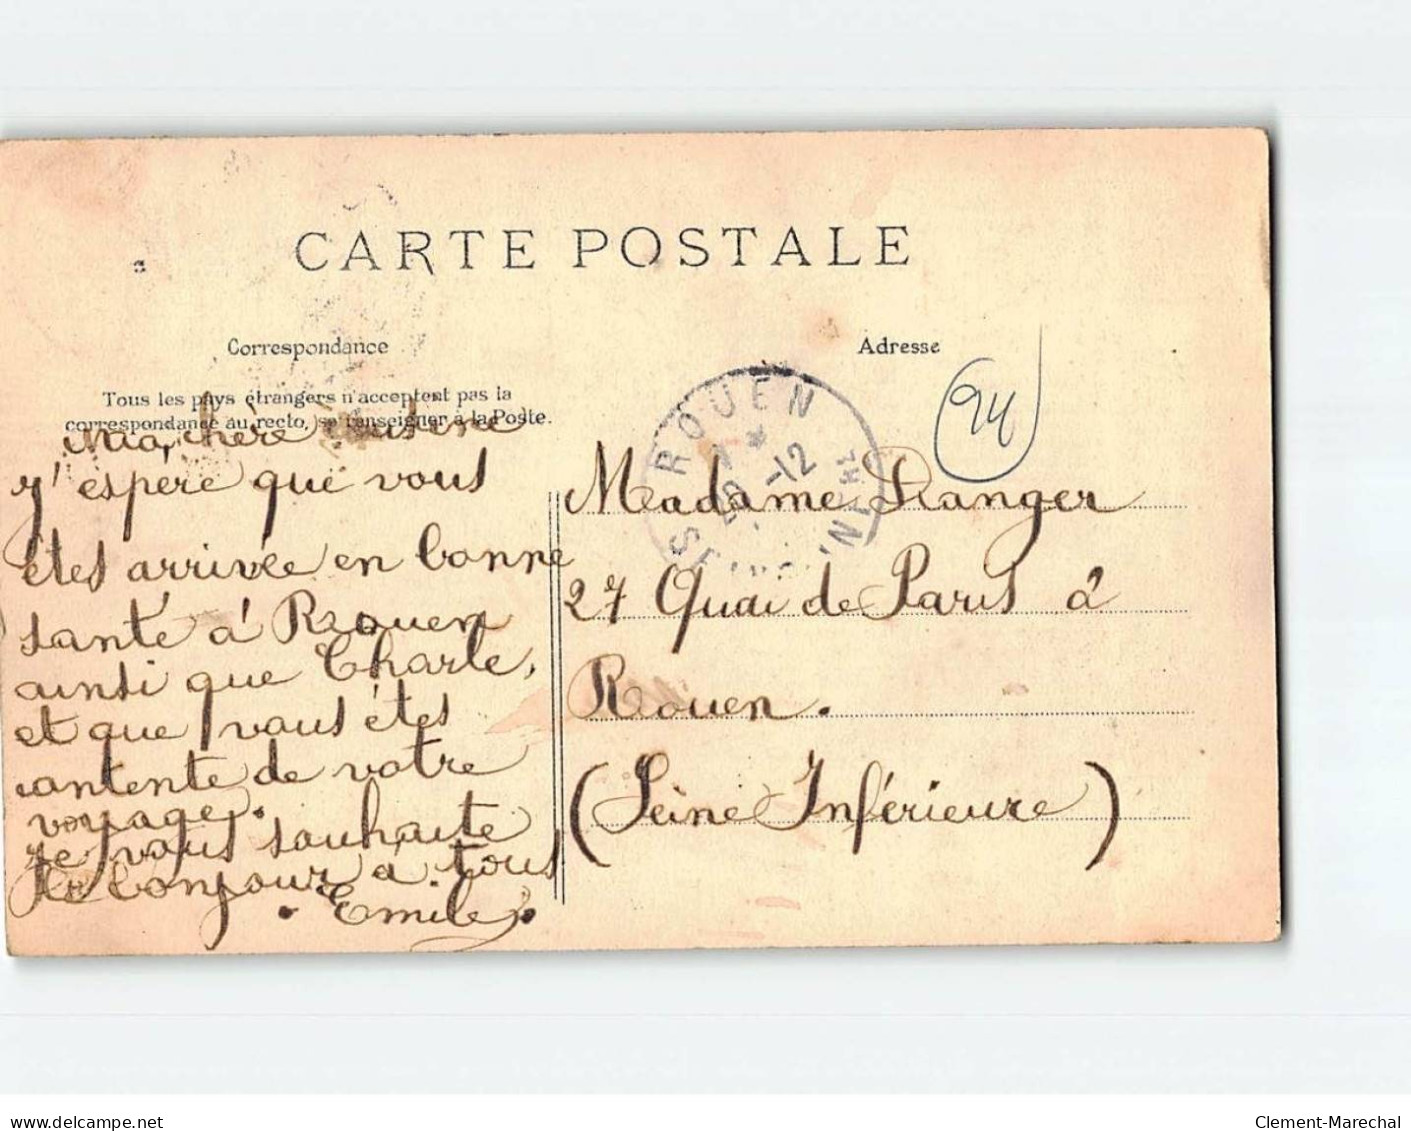 CARTE POSTALE
Correspondance
Adresse
Tous les pays étrangers n'acceptent pas la
correspondance au recto, se renseigner à la Poste.
Ma chère
J'espère que vous
êtes arrivée en bonne
santé à Rouen
ainsi que Charle,
et que vous êtes
contente de votre
voyage.
Je vous souhaite
le bonjour à tous
Emile
ROUEN
-12
94
Madame Ranger
27 Quai de Paris à
Rouen.
(Seine Inférieure)
www.delcampe.net
Clement-Marechal